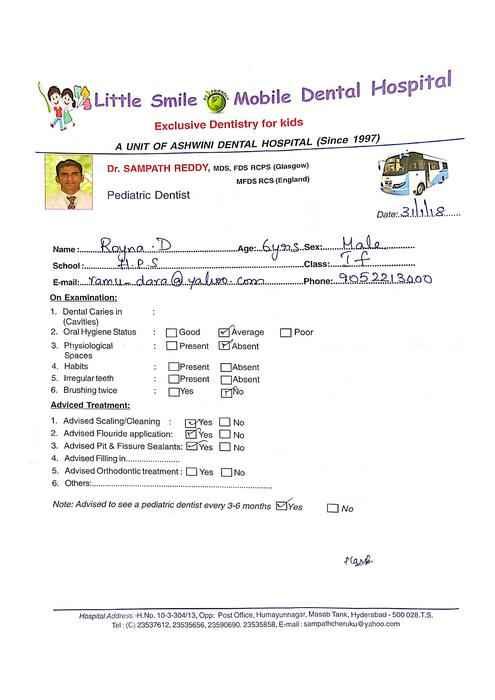 Little Smile Mobile Dental Hospital
Exclusive Dentistry for kids
A UNIT OF ASHWINI DENTAL HOSPITAL (Since 1997)
Dr. SAMPATH REDDY, MDS, FDS RCPS (Glasgow)
MFDS RCS (England)
Pediatric Dentist
Date: 31/1/18
Name: Royna.D Age: 6yrs Sex: Male
School: H.P.S Class: I f
E-mail: ramu_dara@yahoo.com Phone: 9052213000
On Examination:
1. Dental Caries in :
(Cavities)
2. Oral Hygiene Status : Good Average Poor
3. Physiological : Present Absent
Spaces
4. Habits : Present Absent
5. Irregular teeth : Present Absent
6. Brushing twice : Yes No
Adviced Treatment:
1. Advised Scaling/Cleaning : Yes No
2. Advised Flouride application: Yes No
3. Advised Pit & Fissure Sealants: Yes No
4. Advised Filling in
5. Advised Orthodontic treatment : Yes No
6. Others:
Note: Advised to see a pediatric dentist every 3-6 months Yes No
Hospital Address :H.No. 10-3-304/13, Opp: Post Office, Humayunnagar, Masab Tank, Hyderabad - 500 028.T.S.
Tel : (C) 23537612, 23535656, 23590690. 23535858, E-mail : sampathcheruku@yahoo.com